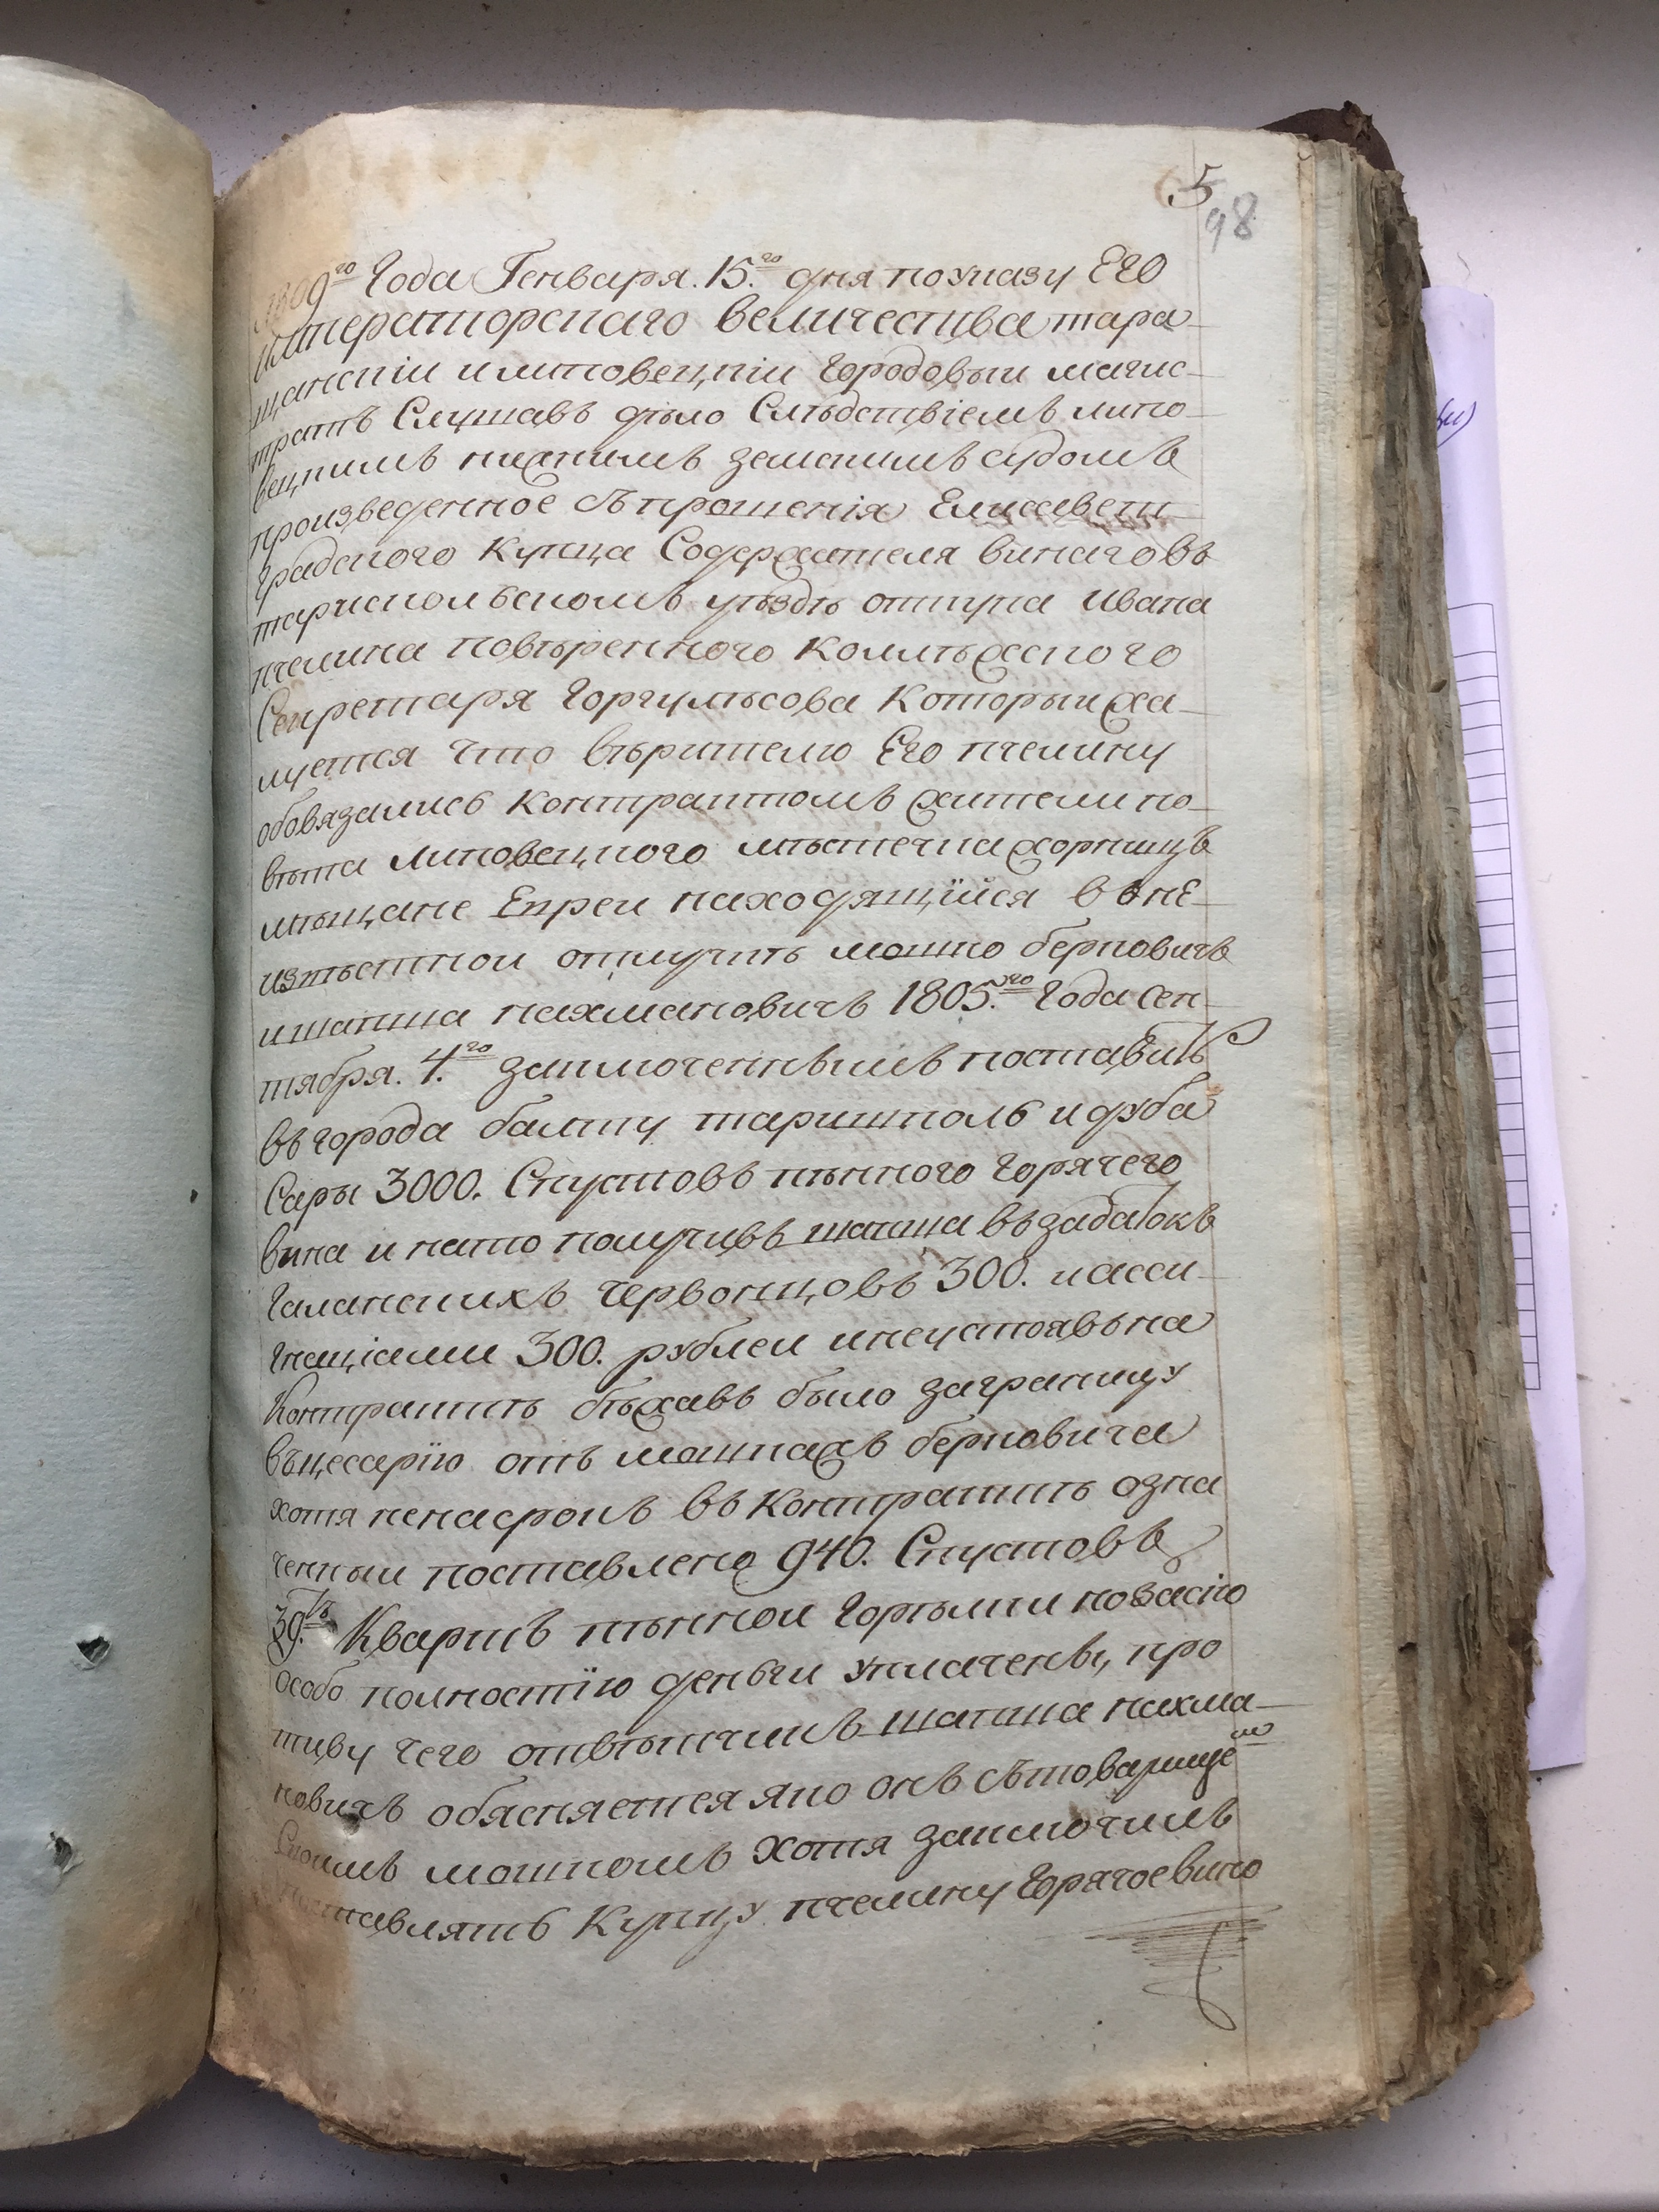 5
98
1809го Года Генваря. 15.го дня по указу Его
императорскаго величества тара-
щанский и липовецкий городовый магис-
тратъ Слушавъ дѣло Слѣдствіемъ липо-
вецкимъ нижнимъ земскимъ судомъ
произведенное съ прошенія Елисавет-
градского Купца Содержателя виннаго въ
тариспольскомъ уѣздѣ откупа ивана
пчелина повѣренного Коллѣжского
Секретаря Горгульсова Который жа-
луется что вѣрителю Его пчелину
обовязались контрактомъ жители по-
вѣта липовецкого мѣстечка
мѣщане Евреи находящійся въ не-
извѣстной отлучкѣ мошко берковичъ
и шапша нахмановичъ 1805.го Года сен-
тября. 4.го заключеннымъ поставить
въ города балту тарисполь и дуба
сары 3000. Скуптовъ пѣнного Горячего
вина и на то получивъ шапша въ задатокъ
галанскихъ червонцовъ 300. и асси-
гнаціями 300. рублей и неустоявъ на
Контрактѣ бѣжавъ было заграницу
въ цесарію отъ мошкахъ берковича
хотя не на срокъ въ Контрактѣ озна
ченный поставлено 940. Скуптовъ
39.ть Квартъ пѣнной горѣлки
особо полностїю деньги уплачены, про
тиву чего отвѣтчикъ шапша нахма-
новичъ обясняется яко онъ съ товарище
Своимъ мошкомъ хотя заключилъ
поставлять Купцу пчелину Горячое вино